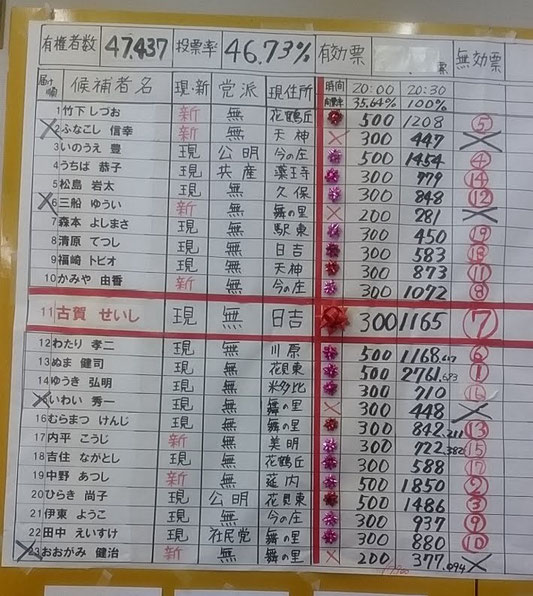 有権者数 47.437 投票率 46.73% 有効票 票 無効票
届け順 候補者名 現・新 党派 現住所 時間 20:00 20:30
開票率 35.64% 100%
1 竹下 しづお 新 無 花鶴丘 500 1208 ⑤
2 ふなこし 信幸 新 無 天神 × 300 447 ×
3 いのうえ 豊 現 公明 今の庄 500 1454 ④
4 うちば 恭子 現 共産 薬王寺 300 779 ⑭
5 松島 岩太 現 無 久保 300 848 ⑫
6 三船 ゆうい 新 無 舞の里 × 200 281 ×
7 森本 よしまさ 現 無 駅東 300 450 ⑲
8 清原 てつし 現 無 日吉 300 583 ⑱
9 福崎 トビオ 現 無 天神 300 873 ⑪
10 かみや 由香 新 無 今の庄 300 1072 ⑧
11 古賀 せいし 現 無 日吉 300 1165 ⑦
12 わたり 孝二 現 無 川原 500 1168.617 ⑥
13 ぬま 健司 現 無 花見東 500 2761.693 ①
14 ゆうき 弘明 現 無 米多比 300 710 ⑯
いわい 秀一 現 無 舞の里 × 300 448 ×
16 むらまつ けんじ 現 無 舞の里 300 842.211 ⑬
17 内平 こうじ 新 無 美明 300 722.382 ⑮
18 吉住 ながとし 現 無 花鶴丘 300 588 ⑰
19 中野 あつし 新 無 筵内 500 1850 ②
20 ひらき 尚子 現 公明 花見東 500 1486 ③
21 伊東 ようこ 現 無 今の庄 300 937 ⑨
22 田中 えいすけ 現 社民党 舞の里 300 880 ⑩
23 おおがみ 健治 新 無 舞の里 × 200 377.094 ×